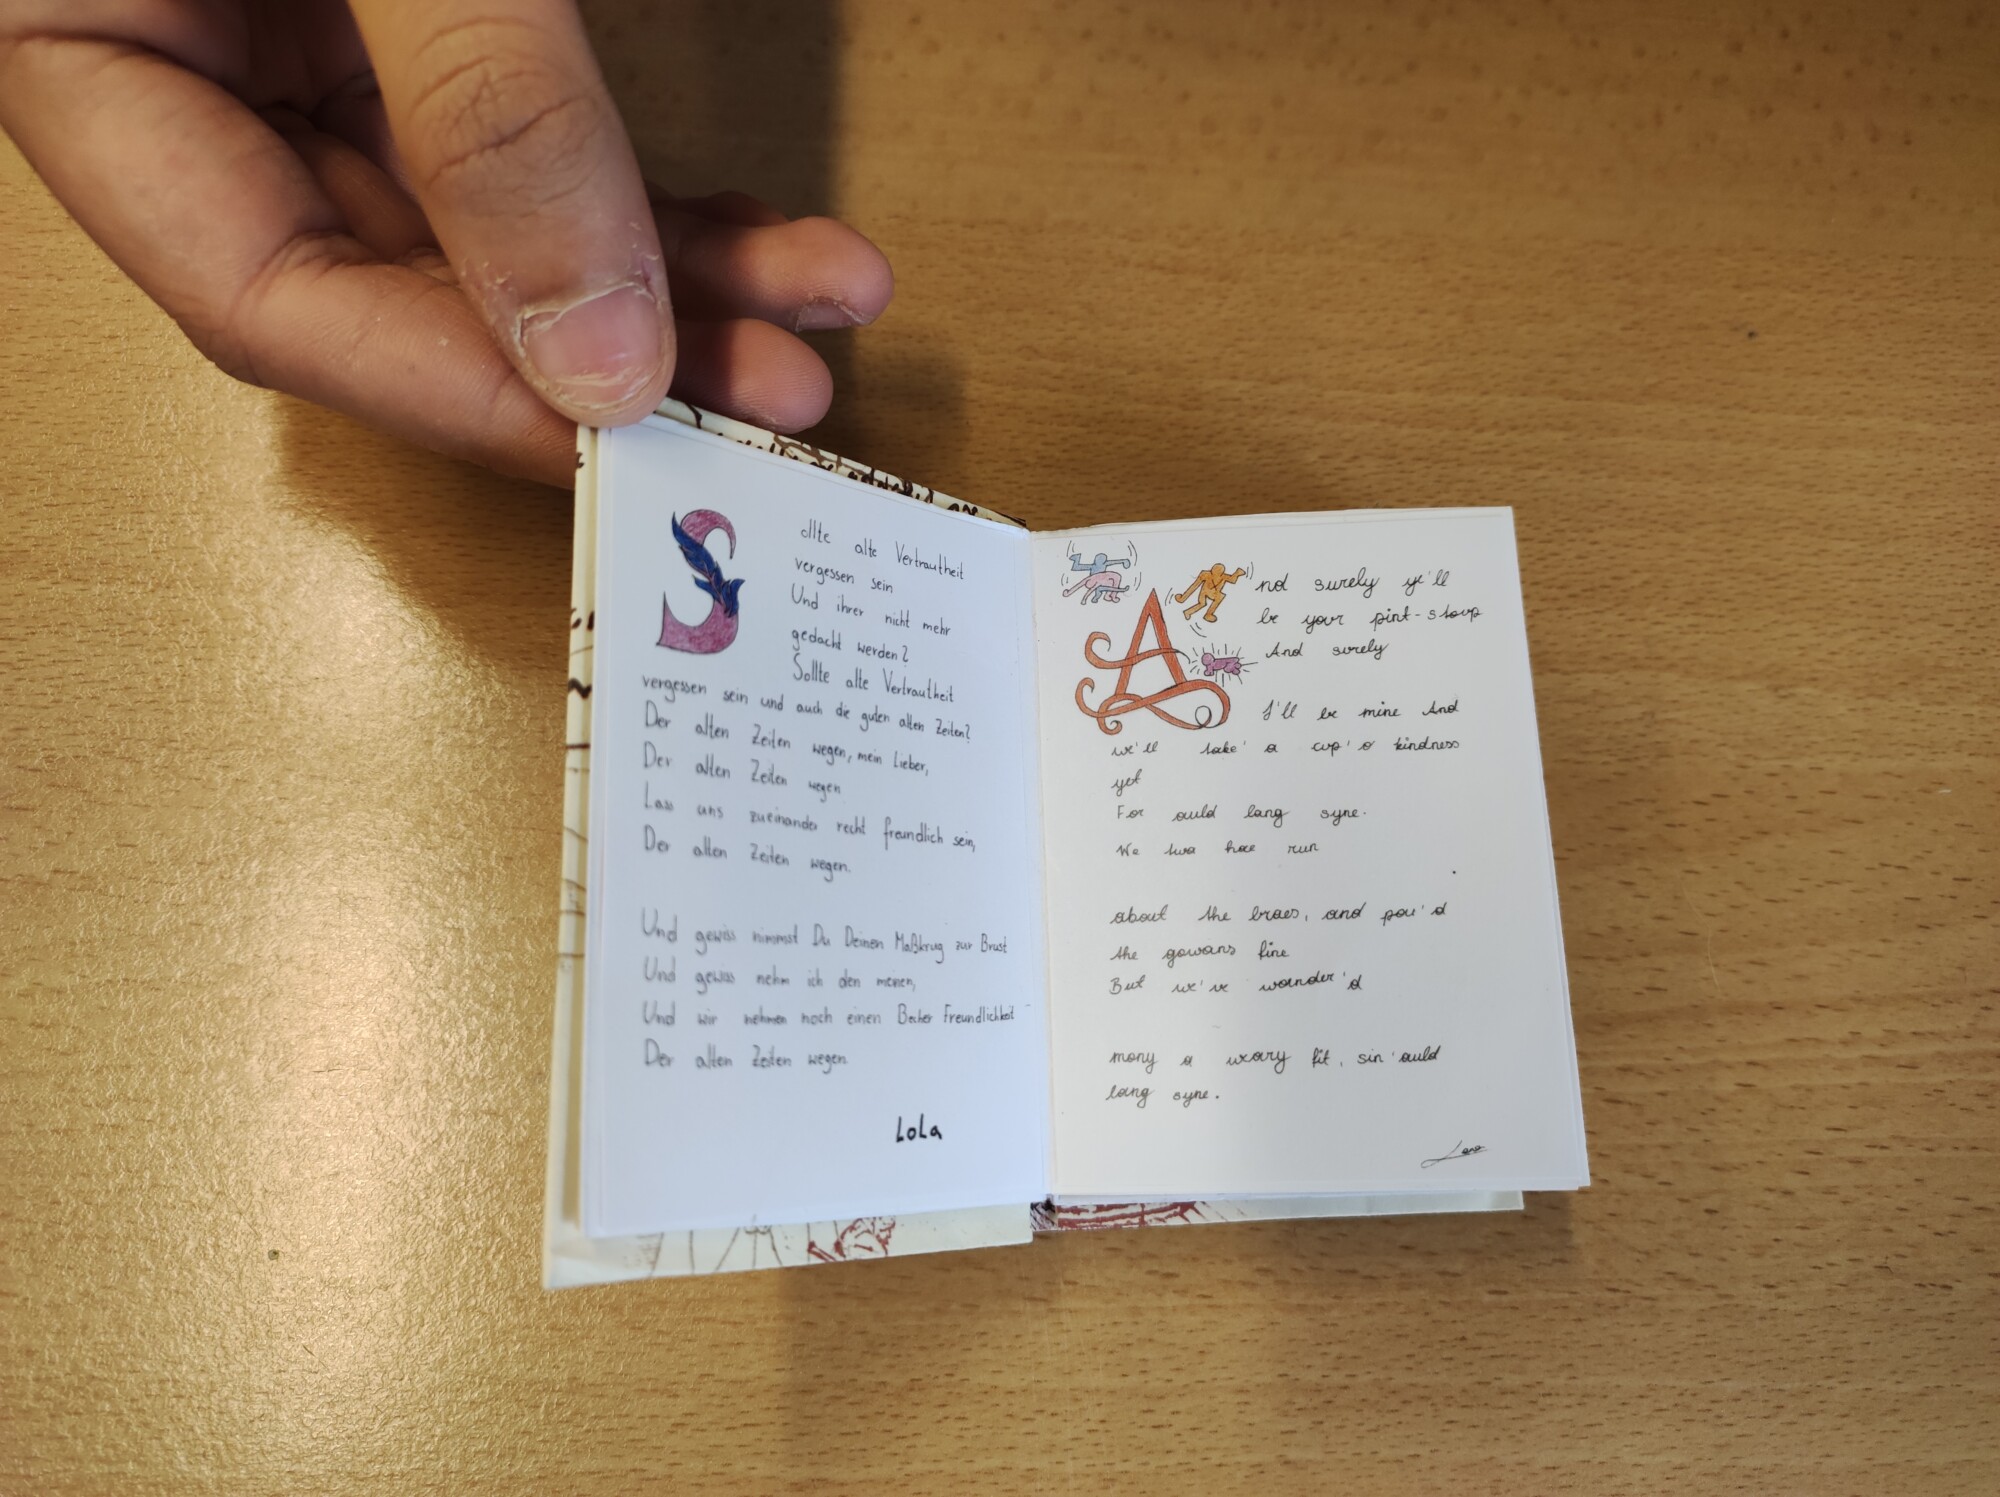 Sollte alte Vertrautheit
vergessen sein
Und ihrer nicht mehr
gedacht werden?
Sollte alte Vertrautheit
vergessen sein und auch die guten alten Zeiten?
Der alten Zeiten wegen, mein Lieber,
Der alten Zeiten wegen
Lass uns zueinander recht freundlich sein,
Der alten Zeiten wegen.
Und gewiss nimmst Du Deinen Maßkrug zur Brust
Und gewiss nehm ich den meinen,
Und wir nehmen noch einen Becher Freundlichkeit
Der alten Zeiten wegen
LoLa
And surely ye'll
be your pint-stoup
And surely
I'll be mine And
we'll take' a cup' o kindness
yet
For auld lang syne.
We twa hae run
about the braes, and pou'd
the gowans fine
But we've wander'd
mony a weary fit, sin' auld
lang syne.